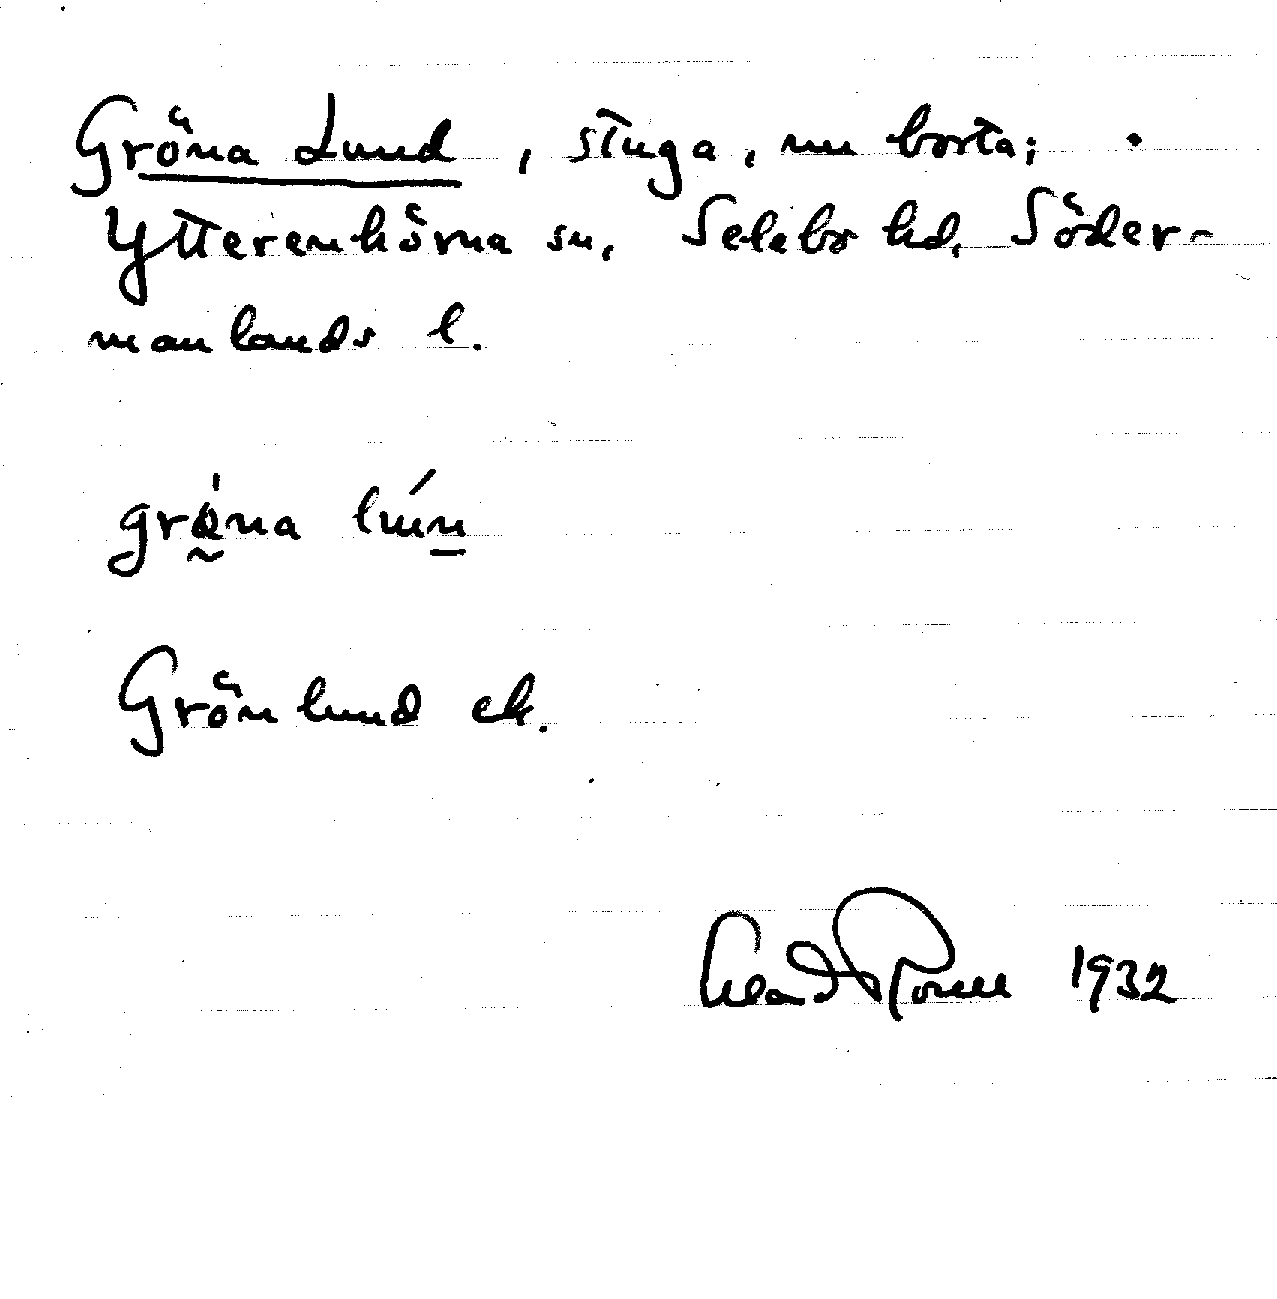 Gröna Lund, stuga, nu borta;
Ytterenhörna sn, Selebo hd, Söder-
manlands l.
Grönlund ek.
1932